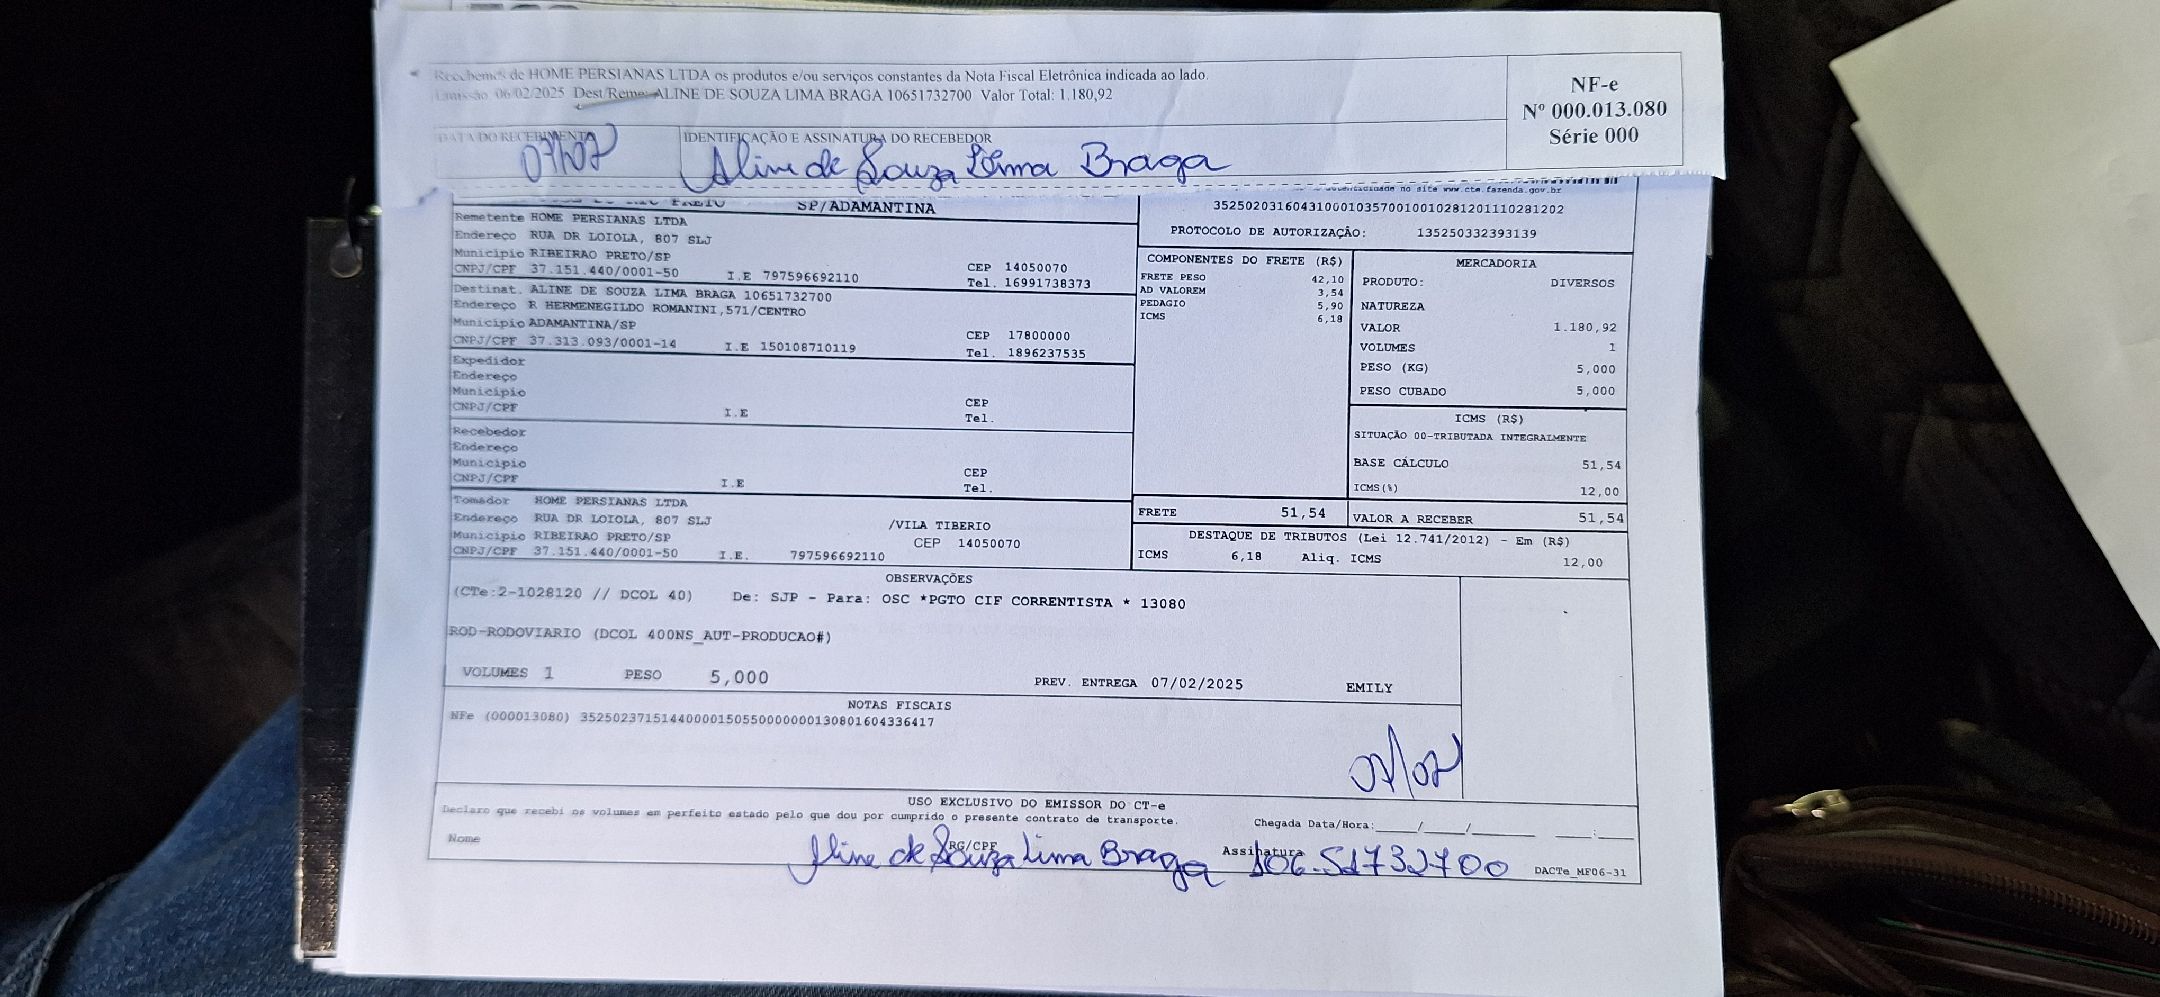 Recebemos de HOME PERSIANAS LTDA os produtos e/ou serviços constantes da Nota Fiscal Eletrônica indicada ao lado.
Emissão 06/02/2025 Dest/Reme: ALINE DE SOUZA LIMA BRAGA 10651732700 Valor Total: 1.180,92
NF-e
Nº 000.013.080
Série 000
DATA DO RECEBIMENTO
IDENTIFICAÇÃO E ASSINATURA DO RECEBEDOR
07/02
Aline de Souza Lima Braga
no site www.cte.fazenda.gov.br
SP/ADAMANTINA
35250203160431000103570010010281201110281202
PROTOCOLO DE AUTORIZAÇÃO: 135250332393139
Remetente HOME PERSIANAS LTDA
Endereço RUA DR LOIOLA, 807 SLJ
Município RIBEIRAO PRETO/SP
CEP 14050070
CNPJ/CPF 37.151.440/0001-50 I.E 797596692110 Tel. 16991738373
Destinat. ALINE DE SOUZA LIMA BRAGA 10651732700
Endereço R HERMENEGILDO ROMANINI,571/CENTRO
Município ADAMANTINA/SP
CEP 17800000
CNPJ/CPF 37.313.093/0001-14 I.E 150108710119 Tel. 1896237535
Expedidor
Endereço
Município
CEP
CNPJ/CPF I.E Tel.
Recebedor
Endereço
Município
CEP
CNPJ/CPF I.E Tel.
Tomador HOME PERSIANAS LTDA
Endereço RUA DR LOIOLA, 807 SLJ /VILA TIBERIO
Município RIBEIRAO PRETO/SP CEP 14050070
CNPJ/CPF 37.151.440/0001-50 I.E. 797596692110
COMPONENTES DO FRETE (R$)
FRETE PESO 42,10
AD VALOREM 3,54
PEDAGIO 5,90
ICMS 6,18
FRETE 51,54
MERCADORIA
PRODUTO: DIVERSOS
NATUREZA
VALOR 1.180,92
VOLUMES 1
PESO (KG) 5,000
PESO CUBADO 5,000
ICMS (R$)
SITUAÇÃO 00-TRIBUTADA INTEGRALMENTE
BASE CÁLCULO 51,54
ICMS(%) 12,00
VALOR A RECEBER 51,54
DESTAQUE DE TRIBUTOS (Lei 12.741/2012) - Em (R$)
ICMS 6,18 Aliq. ICMS 12,00
OBSERVAÇÕES
(CTe:2-1028120 // DCOL 40) De: SJP - Para: OSC *PGTO CIF CORRENTISTA * 13080
ROD-RODOVIARIO (DCOL 400NS_AUT-PRODUCAO#)
VOLUMES 1 PESO 5,000 PREV. ENTREGA 07/02/2025 EMILY
NOTAS FISCAIS
NFe (000013080) 35250237151440000150550000000130801604336417
07/02
USO EXCLUSIVO DO EMISSOR DO CT-e
Declaro que recebi os volumes em perfeito estado pelo que dou por cumprido o presente contrato de transporte.
Chegada Data/Hora:____/____/______ ____:____
Nome RG/CPF Assinatura
Aline de Souza Lima Braga 106.51732700
DACTe_MF06-31